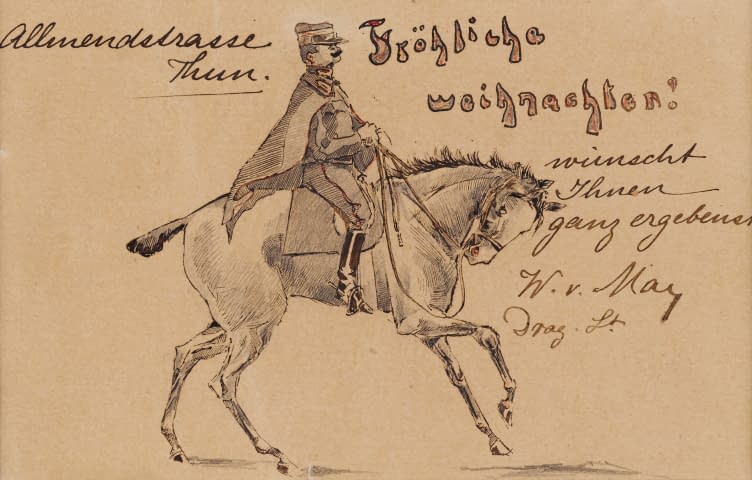 Allmendstrasse
Thun.
Fröhliche
weihnachten!
wünscht
Ihnen
ganz ergebenst
W. v. May
Drag. Lt.